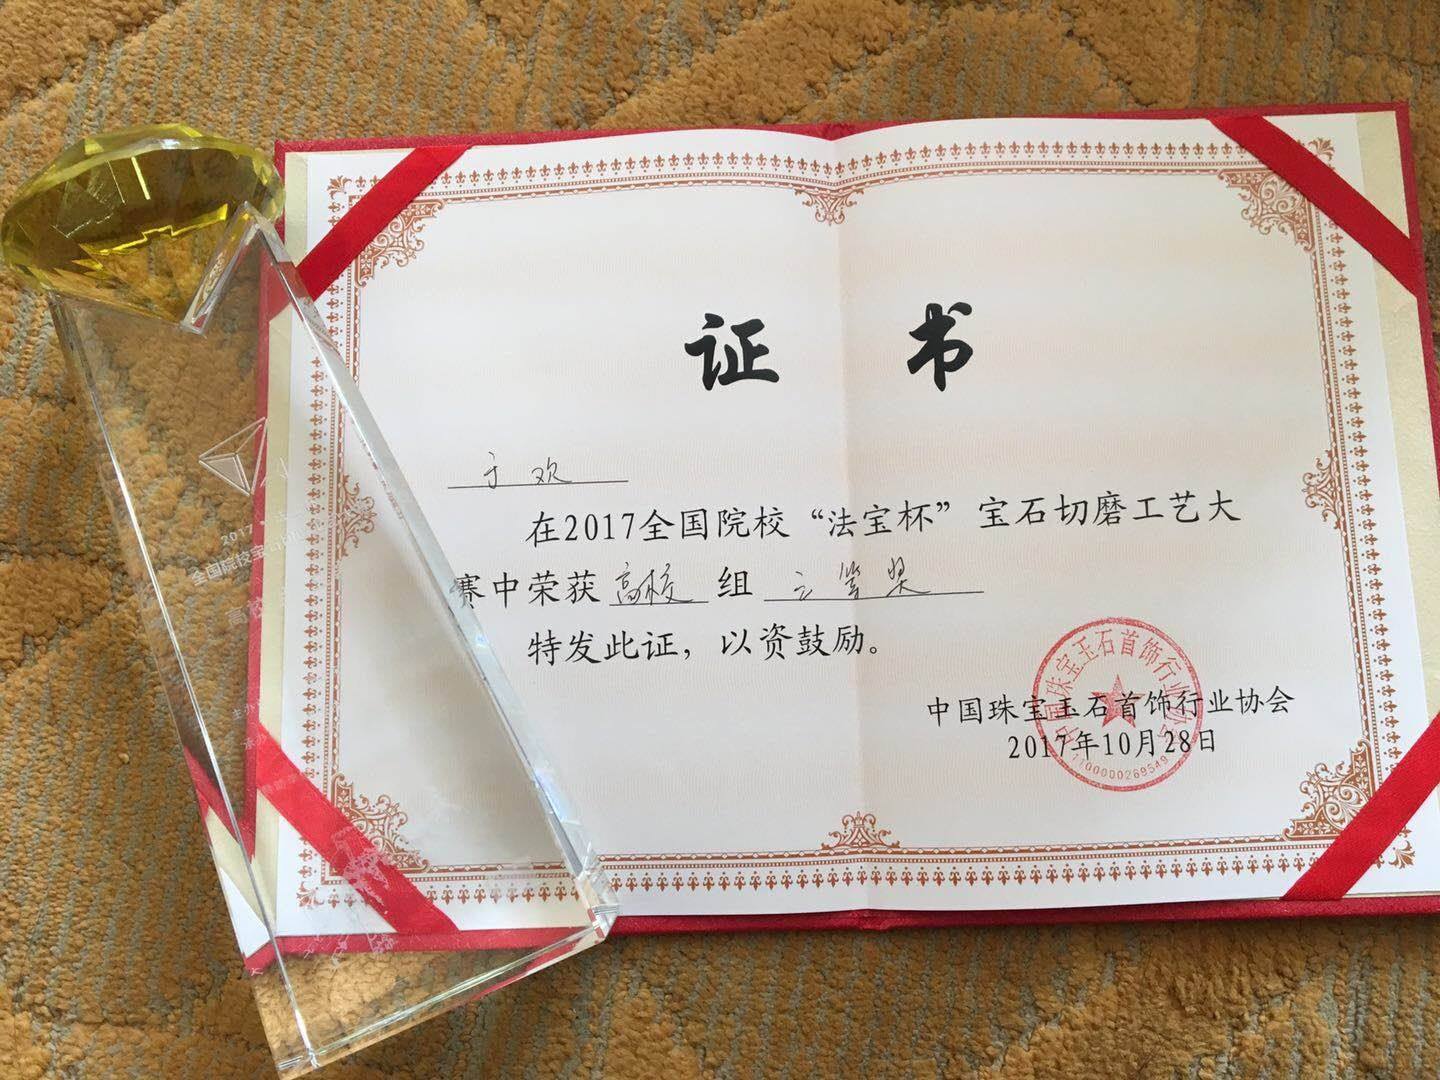 证书
于欢
在2017全国院校“法宝杯”宝石切磨工艺大
赛中荣获高校组三等奖
特发此证，以资鼓励。
中国珠宝玉石首饰行业协会
2017年10月28日
1100000269549
2017
全国院校宝
高校